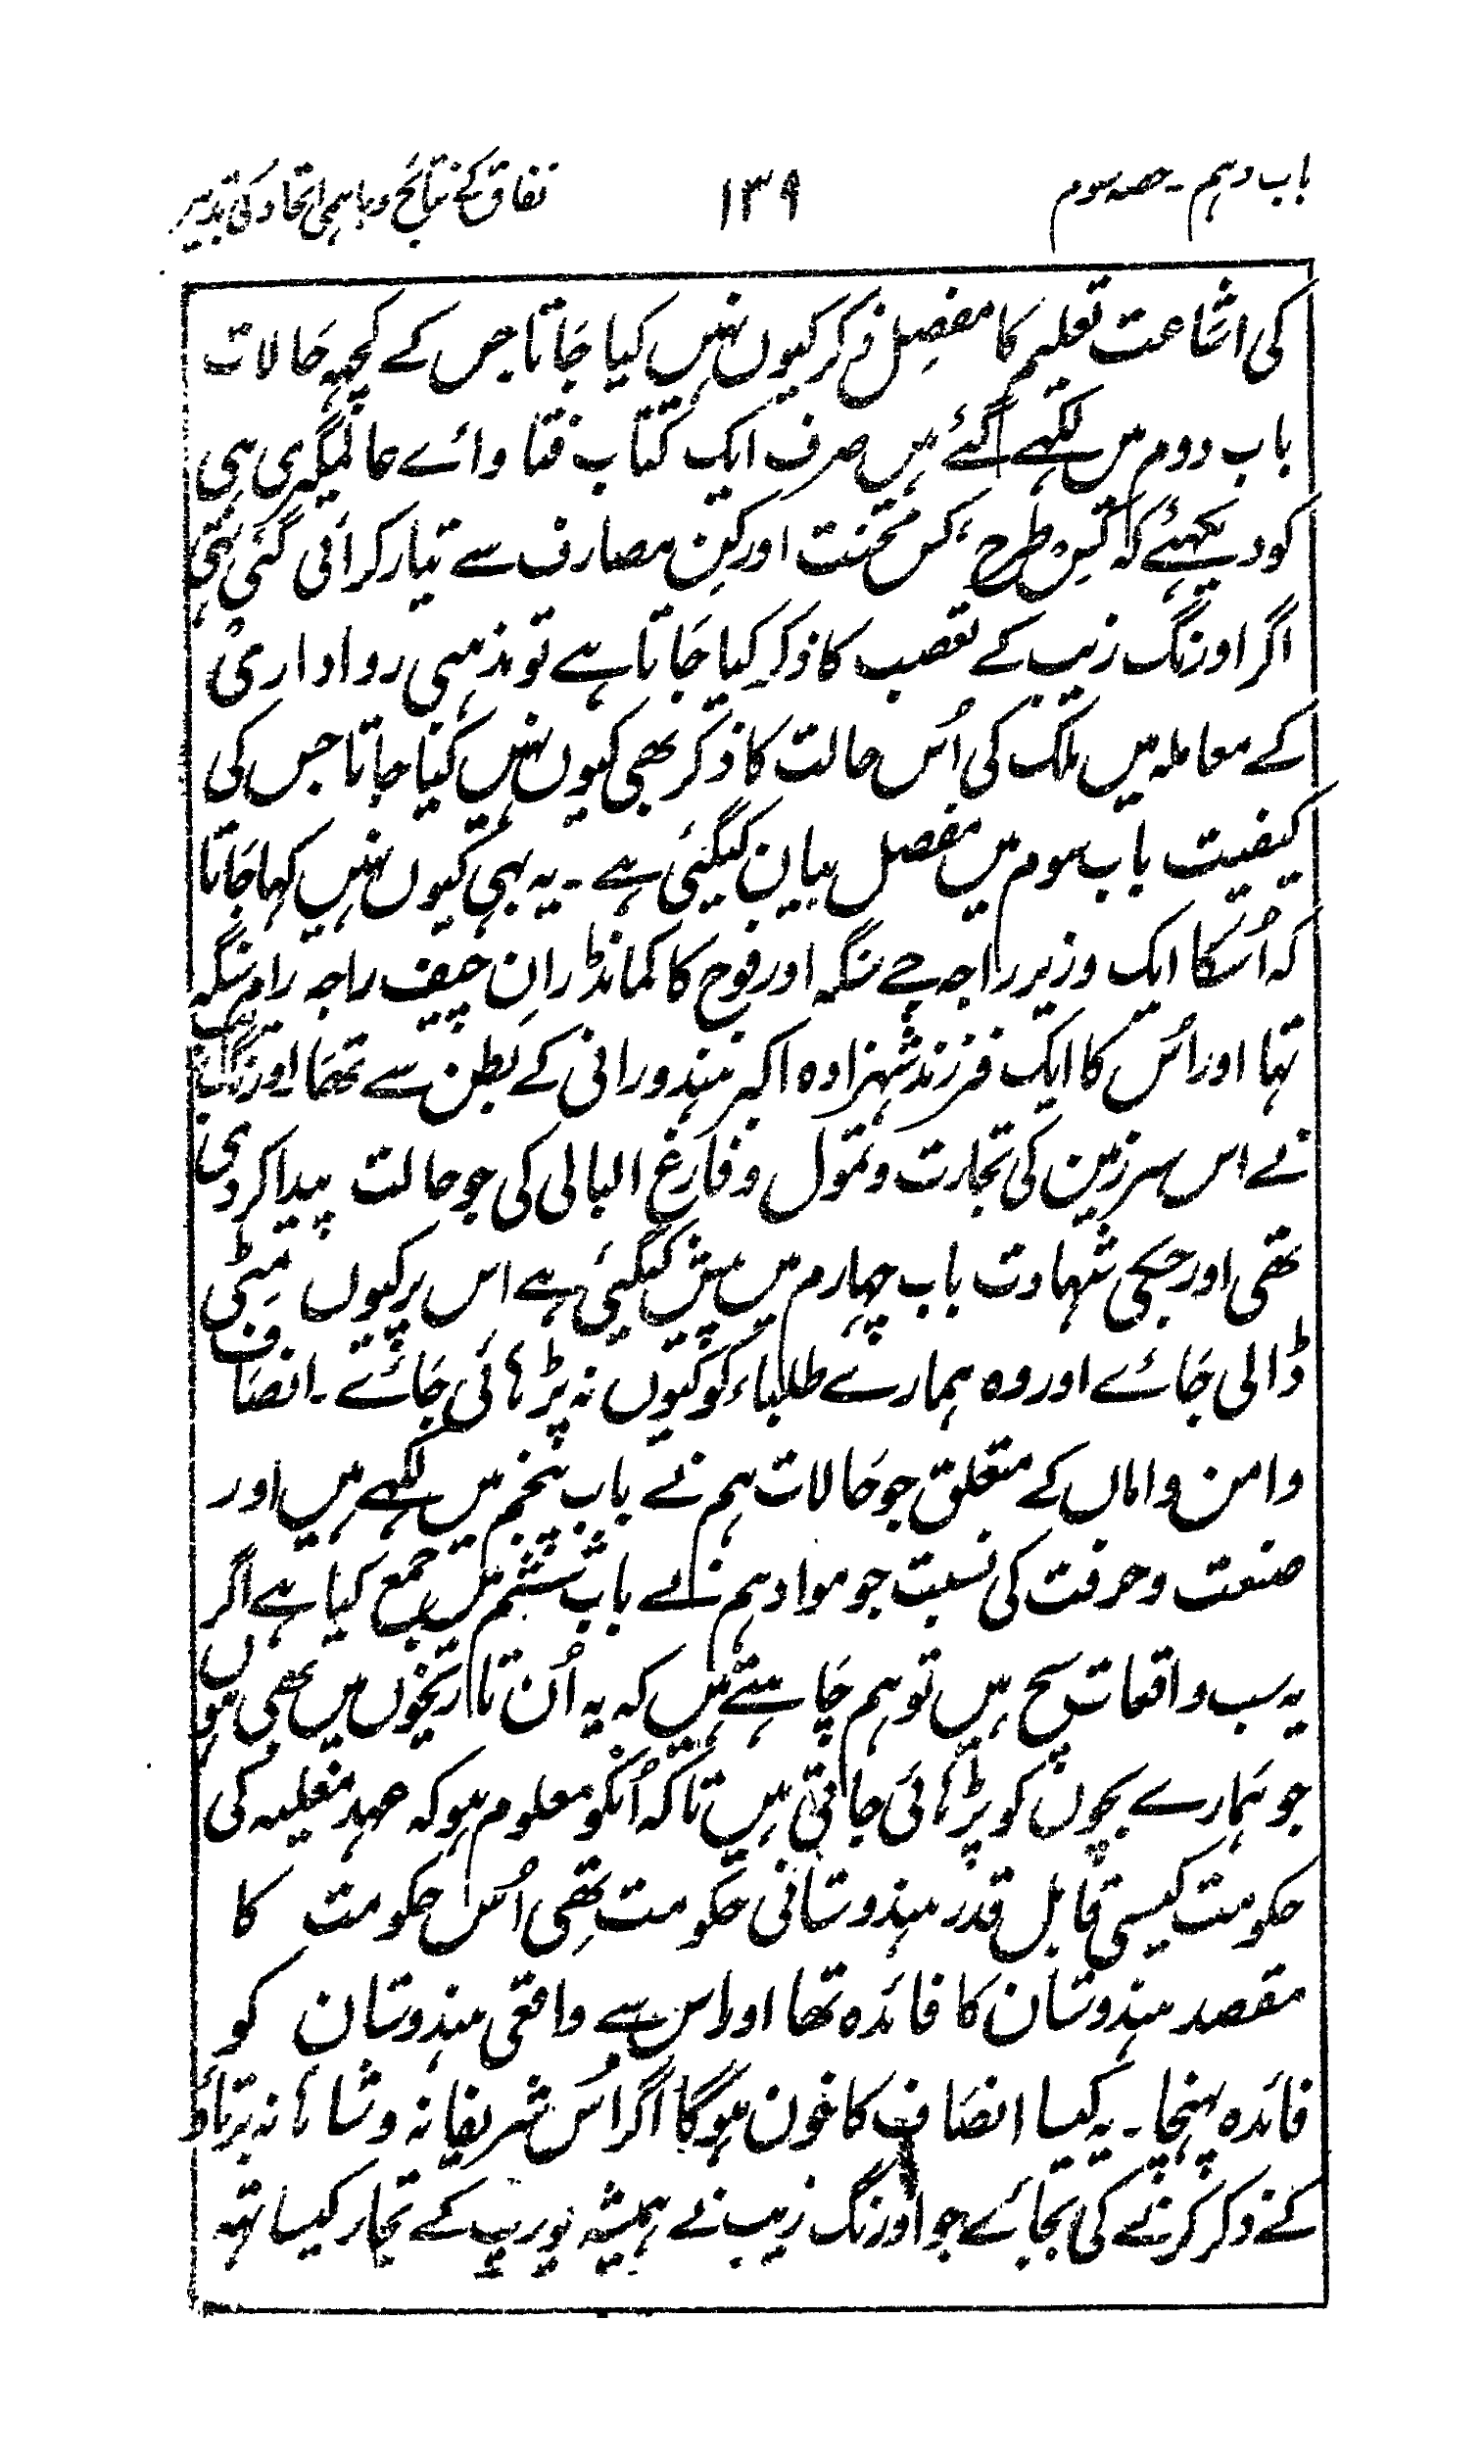 باب دہم - حصہ سوم ۱۳۹ نفاق کے نتائج و باہمی اتحاد کی تدبیر
کی اشاعت تعلیم کا مفصل ذکر کیوں نہیں کیا جاتا جس کے کچہہ حالات
باب دوم میں لکہے گئے ہیں صرف ایک کتاب فتاوائے عالمگیری ہی
کو دیکہئے کہ کس طرح، کس محنت اور کن مصارف سے تیار کرائی گئی تہی
اگر اورنگ زیب کے تعصب کا ذکر کیا جاتا ہے تو مذہبی رواداری
کے معاملہ میں ملک کی اُس حالت کا ذکر بھی کیوں نہیں کیا جاتا جس کی
کیفیت باب سوم میں مفصل بیان کیگئی ہے - یہ بہی کیوں نہیں کہا جاتا
کہ اُسکا ایک وزیر راجہ جے سنگہ اور فوج کا کمانڈر ان چیف راجہ رام سنگہ
تہا اور اُس کا ایک فرزند شہزادہ اکبر ہندو رانی کے بطن سے تھا اورنگ زیب
نے اس سرزمین کی تجارت و تمول و فارغ البالی کی جو حالت پیدا کر دی
تھی اور جسکی شہادت باب چہارم میں پیش کیگئی ہے اس پر کیوں مِٹی
ڈالی جائے اور وہ ہمارے طلباء کو کیوں نہ پڑہائی جائے - انصاف
و امن و اماں کے متعلق جو حالات ہم نے باب پنجم میں لکہے ہیں اور
صنعت و حرفت کی نسبت جو مواد ہم نے باب ششم میں جمع کیا ہے اگر
یہ سب واقعات سچ ہیں تو ہم چاہتے ہیں کہ یہ اُن تاریخوں میں بھی ہوں
جو ہمارے بچوں کو پڑہائی جاتی ہیں تاکہ اُنکو معلوم ہو کہ عہد مغلیہ کی
حکومت کیسی قابل قدر ہندوستانی حکومت تھی اُس حکومت کا
مقصد ہندوستان کا فائدہ تھا اور اس سے واقعی ہندوستان کو
فائدہ پہنچا - یہ کیسا انصاف کا خون ہوگا اگر اُس شریفانہ و شاہانہ برتاؤ
کے ذکر کرنے کی بجائے جو اورنگ زیب نے ہمیشہ یورپ کے تجار کیساتہہ